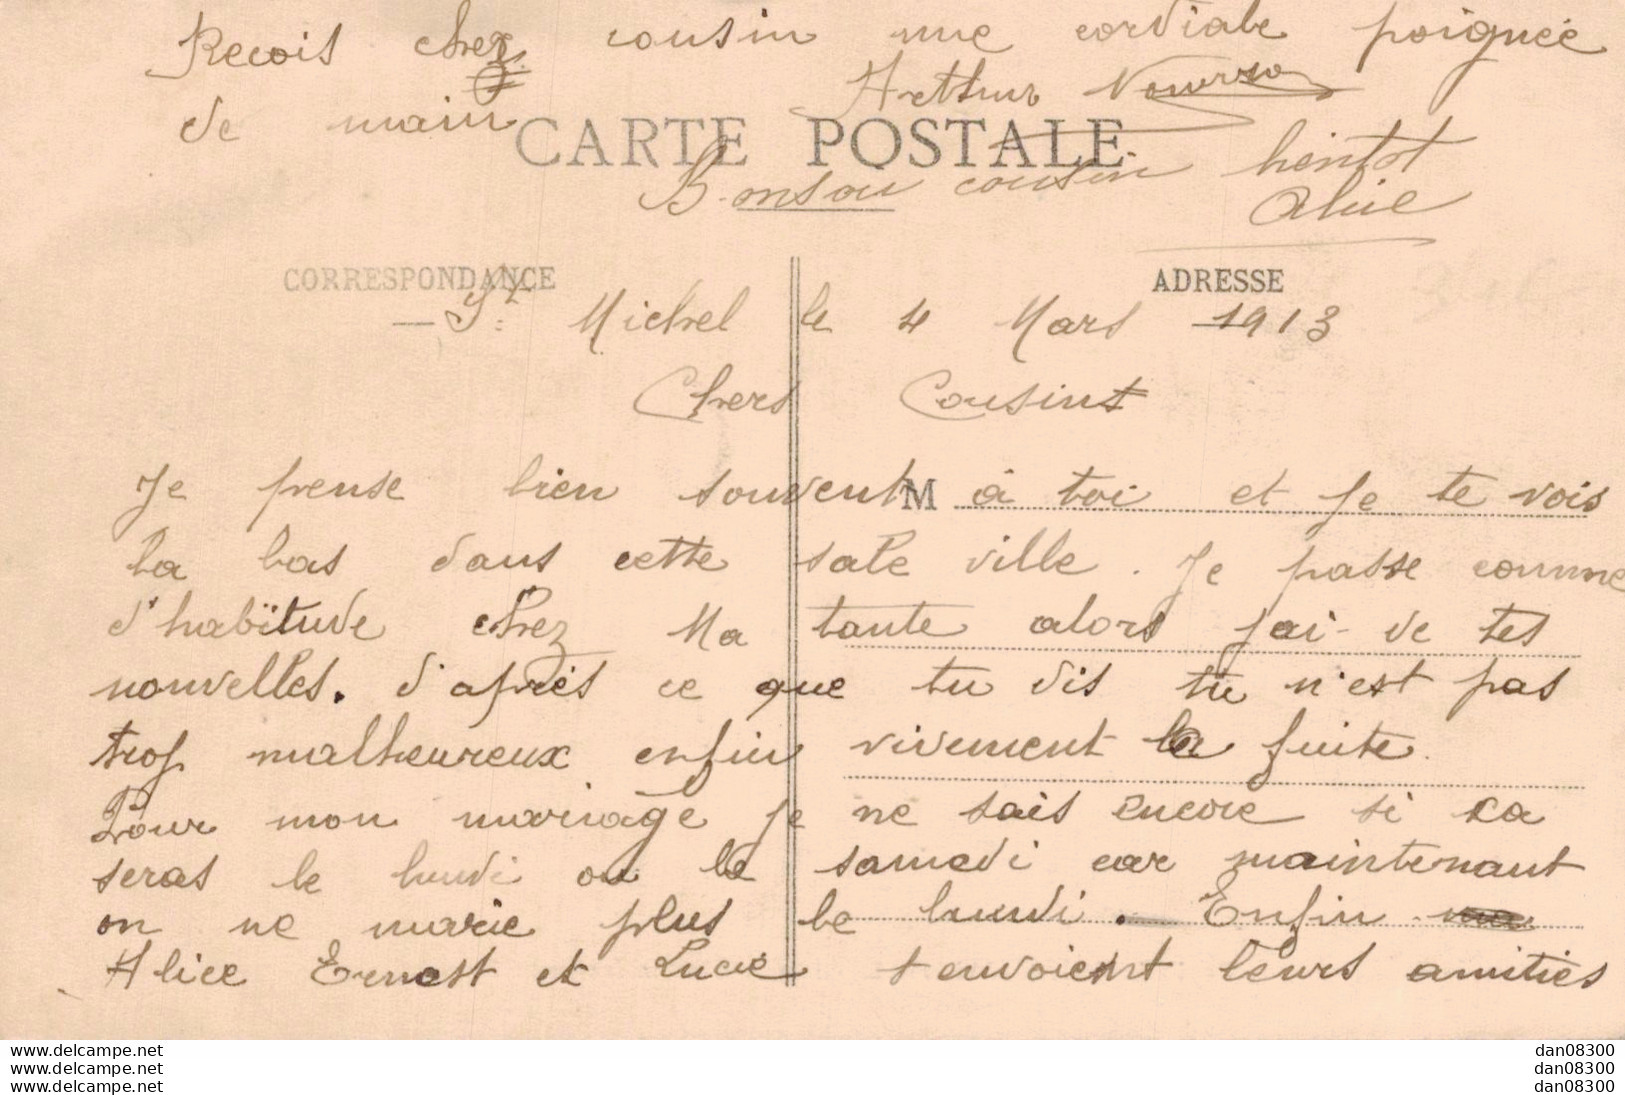 Recois cher cousin une cordiale poignée
de main Arthur
CARTE POSTALE
Bonsoir cousin bientot
Alice
CORRESPONDANCE
ADRESSE
St Michel le 4 Mars 1913
Chers Cousins
Je pense bien souvent M à toi et je te vois
la bas dans cette sale ville. Je passe comme
d'habitude chez Ma tante alors j'ai de tes
nouvelles. d'après ce que tu dis tu n'est pas
trop malheureux enfin vivement la fuite.
Pour mon mariage je ne sais encore si ca
seras le lundi ou le samedi car maintenant
on ne marie plus le lundi. Enfin
Alice Ernest et Lucie t envoient leurs amitiés
www.delcampe.net
www.delcampe.net
www.delcampe.net
dan08300
dan08300
dan08300